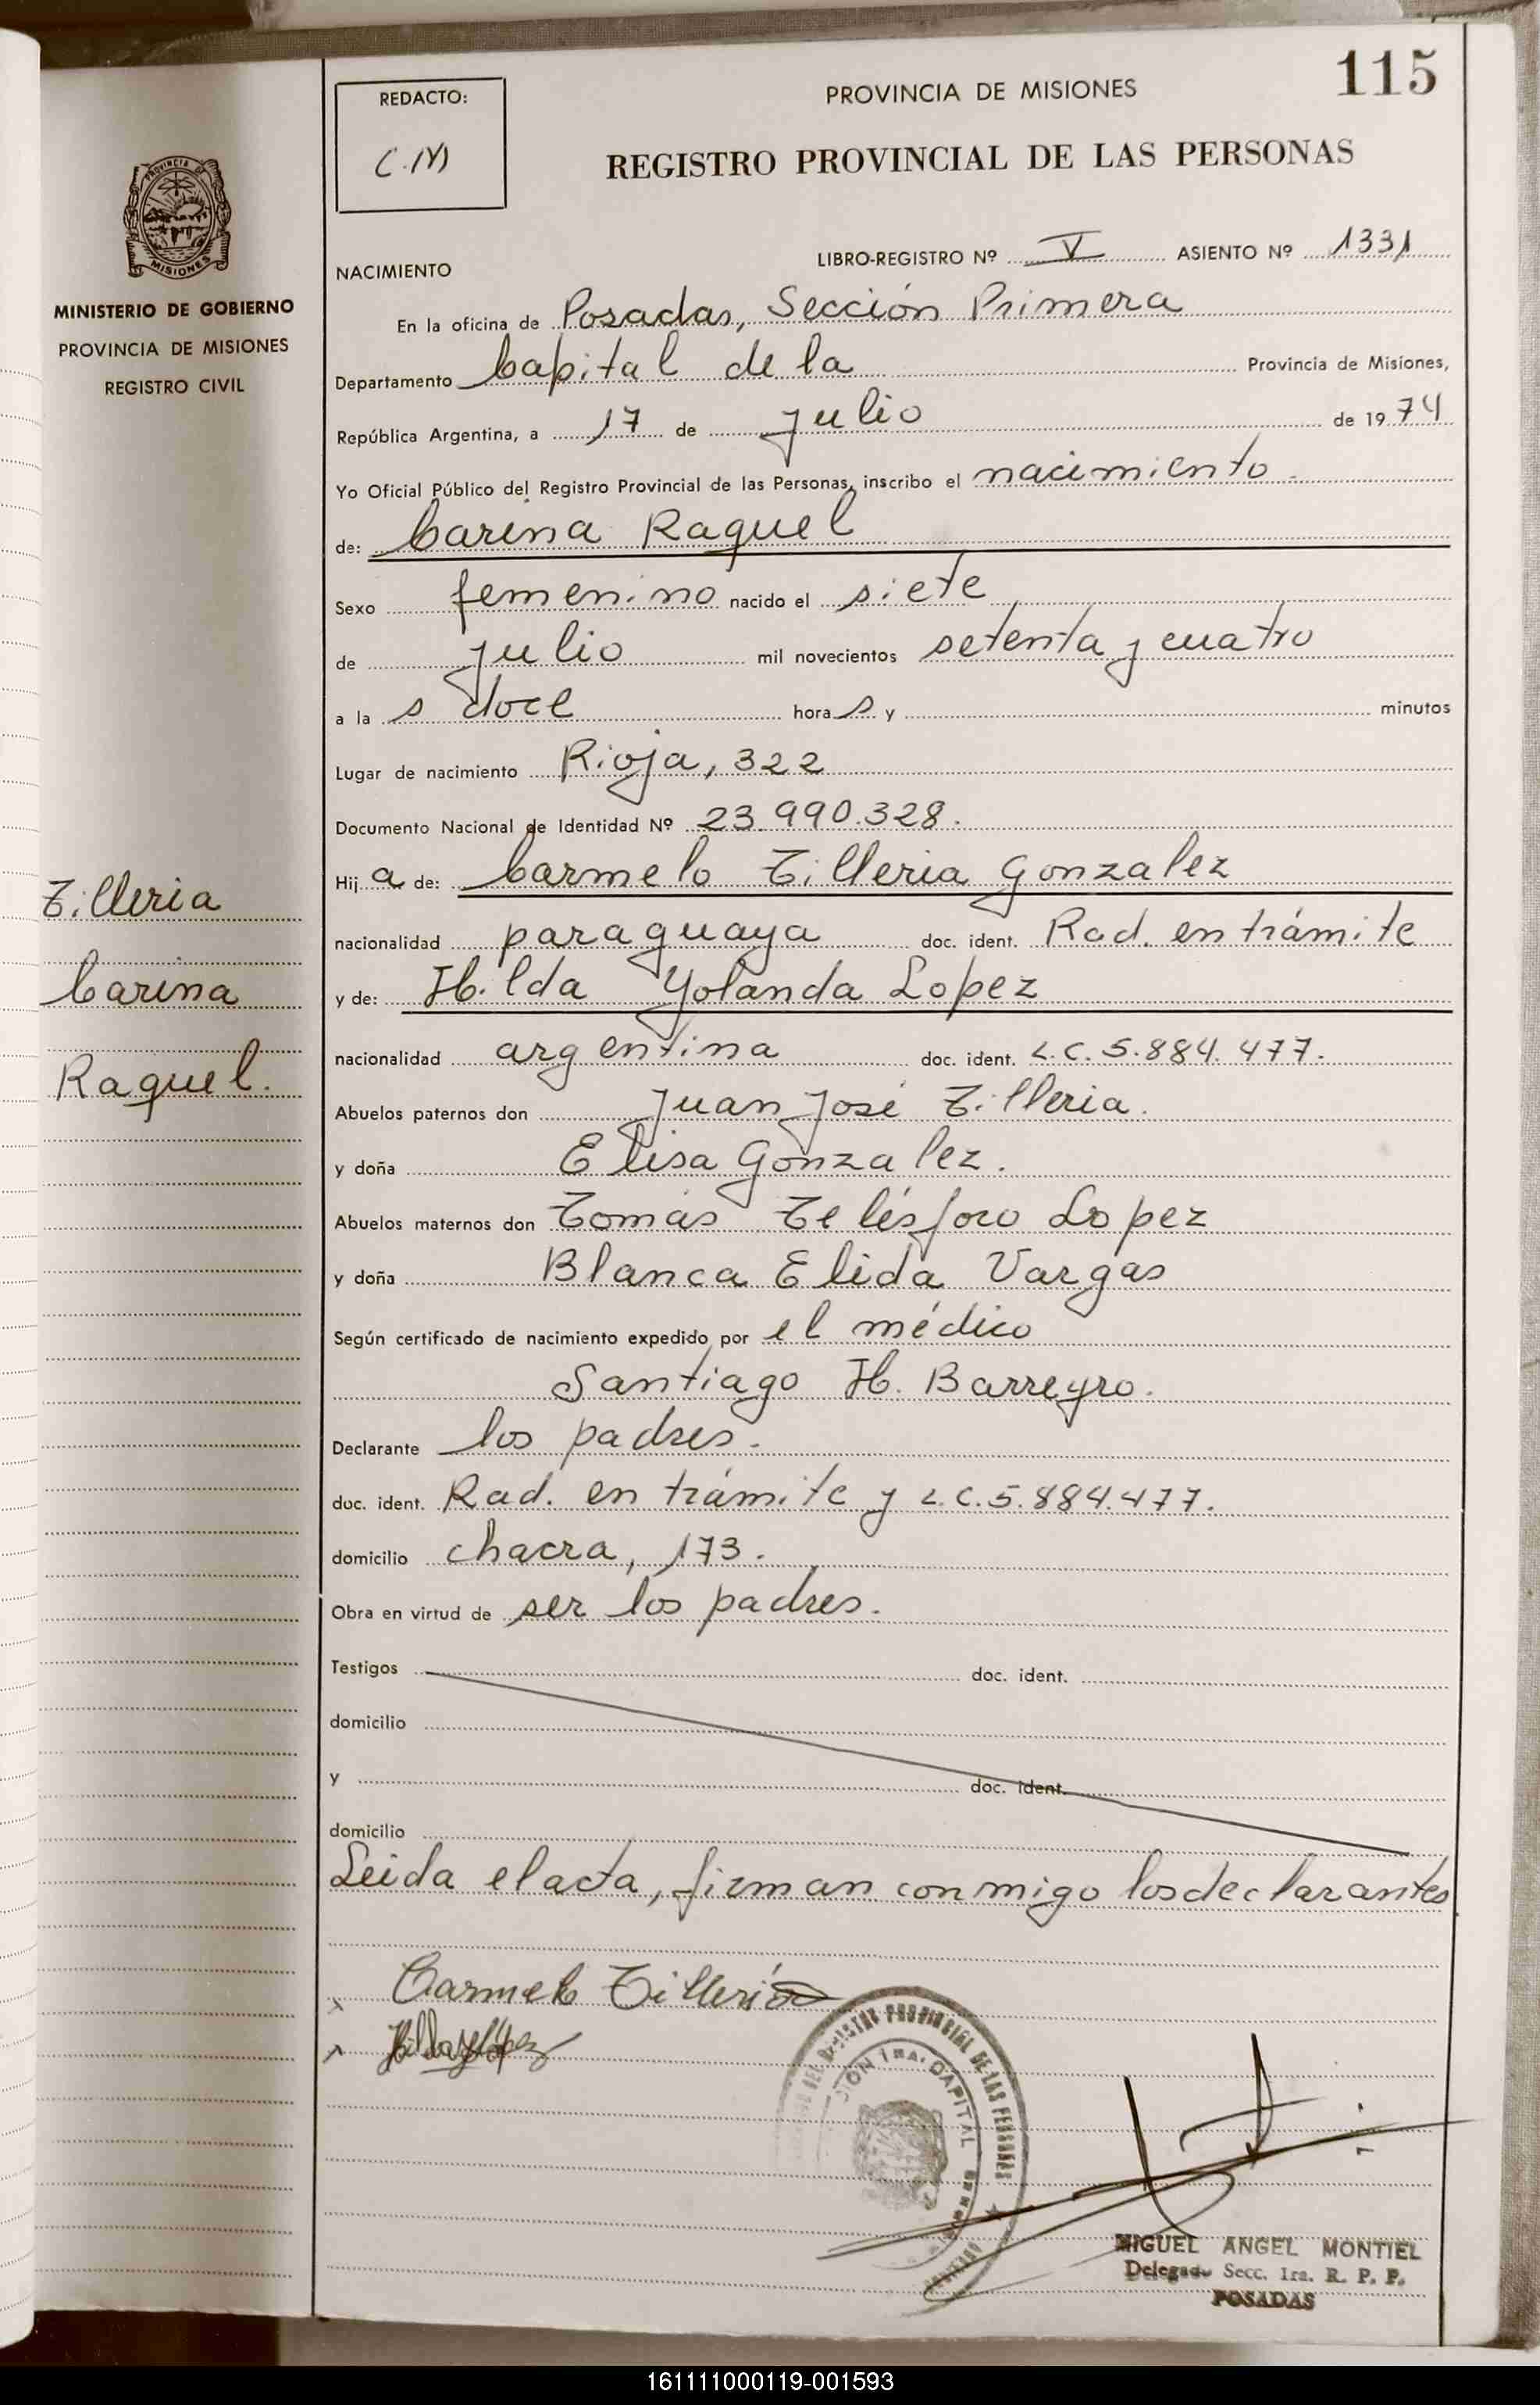 115
REDACTO:
PROVINCIA DE MISIONES
REGISTRO PROVINCIAL DE LAS PERSONAS
PROVINCIA DE
MISIONES
MINISTERIO DE GOBIERNO
PROVINCIA DE MISIONES
REGISTRO CIVIL
NACIMIENTO
LIBRO-REGISTRO Nº V ASIENTO Nº 1331
En la oficina de Posadas, Sección Primera
Departamento Capital de la Provincia de Misiones,
República Argentina, a 17 de Julio de 1974
Yo Oficial Público del Registro Provincial de las Personas, inscribo el nacimiento.
de: Carina Raquel
Sexo femenino nacido el siete
de Julio mil novecientos setenta y cuatro
a la s doce hora s y minutos
Lugar de nacimiento Rioja, 322
Documento Nacional de Identidad Nº 23.990.328.
Hij a de: Carmelo Tilleria Gonzalez
nacionalidad paraguaya doc. ident. Rad. en trámite
y de: Hilda Yolanda Lopez
nacionalidad argentina doc. ident. L.C. 5.884.477.
Abuelos paternos don Juan José Tilleria.
y doña Elisa Gonzalez.
Abuelos maternos don Tomás Telésforo Lopez
y doña Blanca Elida Vargas
Según certificado de nacimiento expedido por el médico
Santiago H. Barreyro.
Declarante los padres.
doc. ident. Rad. en trámite y L.C. 5.884.477.
domicilio chacra, 173.
Obra en virtud de ser los padres.
Testigos doc. ident.
domicilio
y doc. ident.
domicilio
Leida el acta, firman conmigo los declarantes
Tilleria
Carina
Raquel.
x Carmelo Tilleria
x Hilda Y López
REGISTRO PROVINCIAL DE LAS PERSONAS
1RA. CAPITAL
MIGUEL ANGEL MONTIEL
Delegado Secc. 1ra. R. P. P.
POSADAS
161111000119-001593